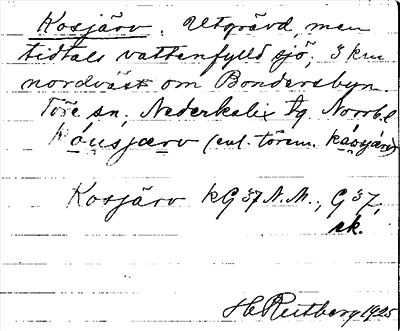 Kosjärv. Utgrävd, men
tidtals vattenfylld sjö, 3 km
nordväst om Bondersbyn.
Töre sn, Nederkalix tg Norrb. l
kóusjærv (enl. törem. kåsjärv)
Kosjärv KG 37 N.M., G 37,
sk.
H Reutberg 1925